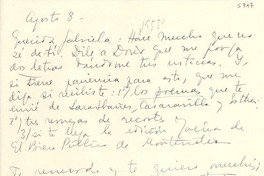 Agosto 8.
1955?
5747
Querida Gabriela: Hace mucho que no
sé de ti. Dile a Doris que me ponga
dos letras dándome tus noticias. Y
si tiene paciencia para esto, que me
diga si recibiste: 1º/ los poemas que te
envié de Casaravilla y Esther
2º/ tus remesas de recorts y
3/ si te llega la edición
El Bien Público de Montevideo
Te recuerdo y te quiero mucho,